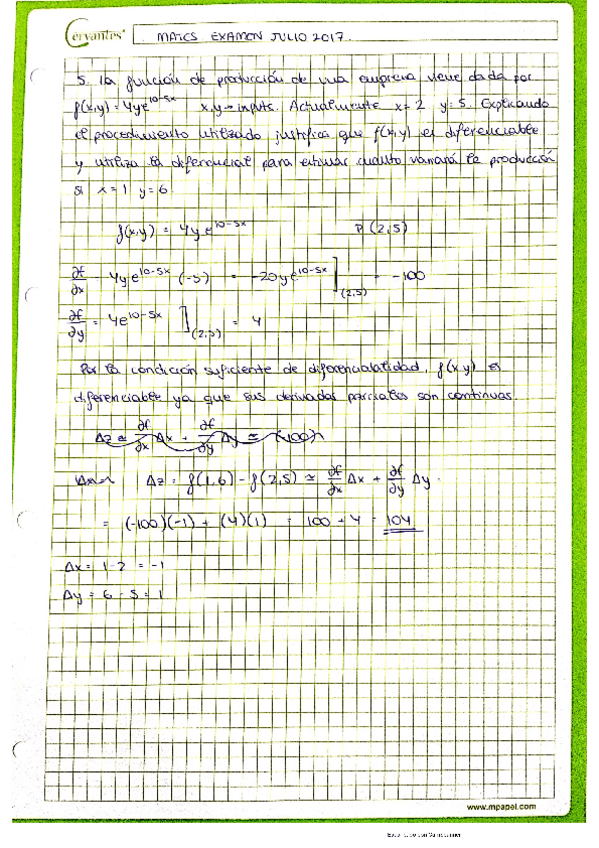 Cervantes
MATES EXAMEN JULIO 2017.
5. la función de producción de una empresa viene dada por
f(x,y) = 4ye^{10-5x} x,y → inputs. Actualmente x=2 y=5. Explicando
el procedimiento utilizado justifica que f(x,y) es diferenciable
y utiliza la diferencial para estimar cuánto variará la producción
si x=1 y=6
f(x,y) = 4ye^{10-5x} P(2,5)
∂f/∂x = 4ye^{10-5x} (-5) = -20ye^{10-5x}](2,5) = -100
∂f/∂y = 4e^{10-5x} ](2,5) = 4
Por la condición suficiente de diferenciabilidad, f(x,y) es
diferenciable ya que sus derivadas parciales son continuas.
Δz ≅ ∂f/∂x Δx + ∂f/∂y Δy ≅ (-100)
Δz = f(1,6) - f(2,5) ≅ ∂f/∂x Δx + ∂f/∂y Δy.
= (-100)(-1) + (4)(1) = 100 + 4 = 104
Δx = 1-2 = -1
Δy = 6-5 = 1
www.mpapel.com